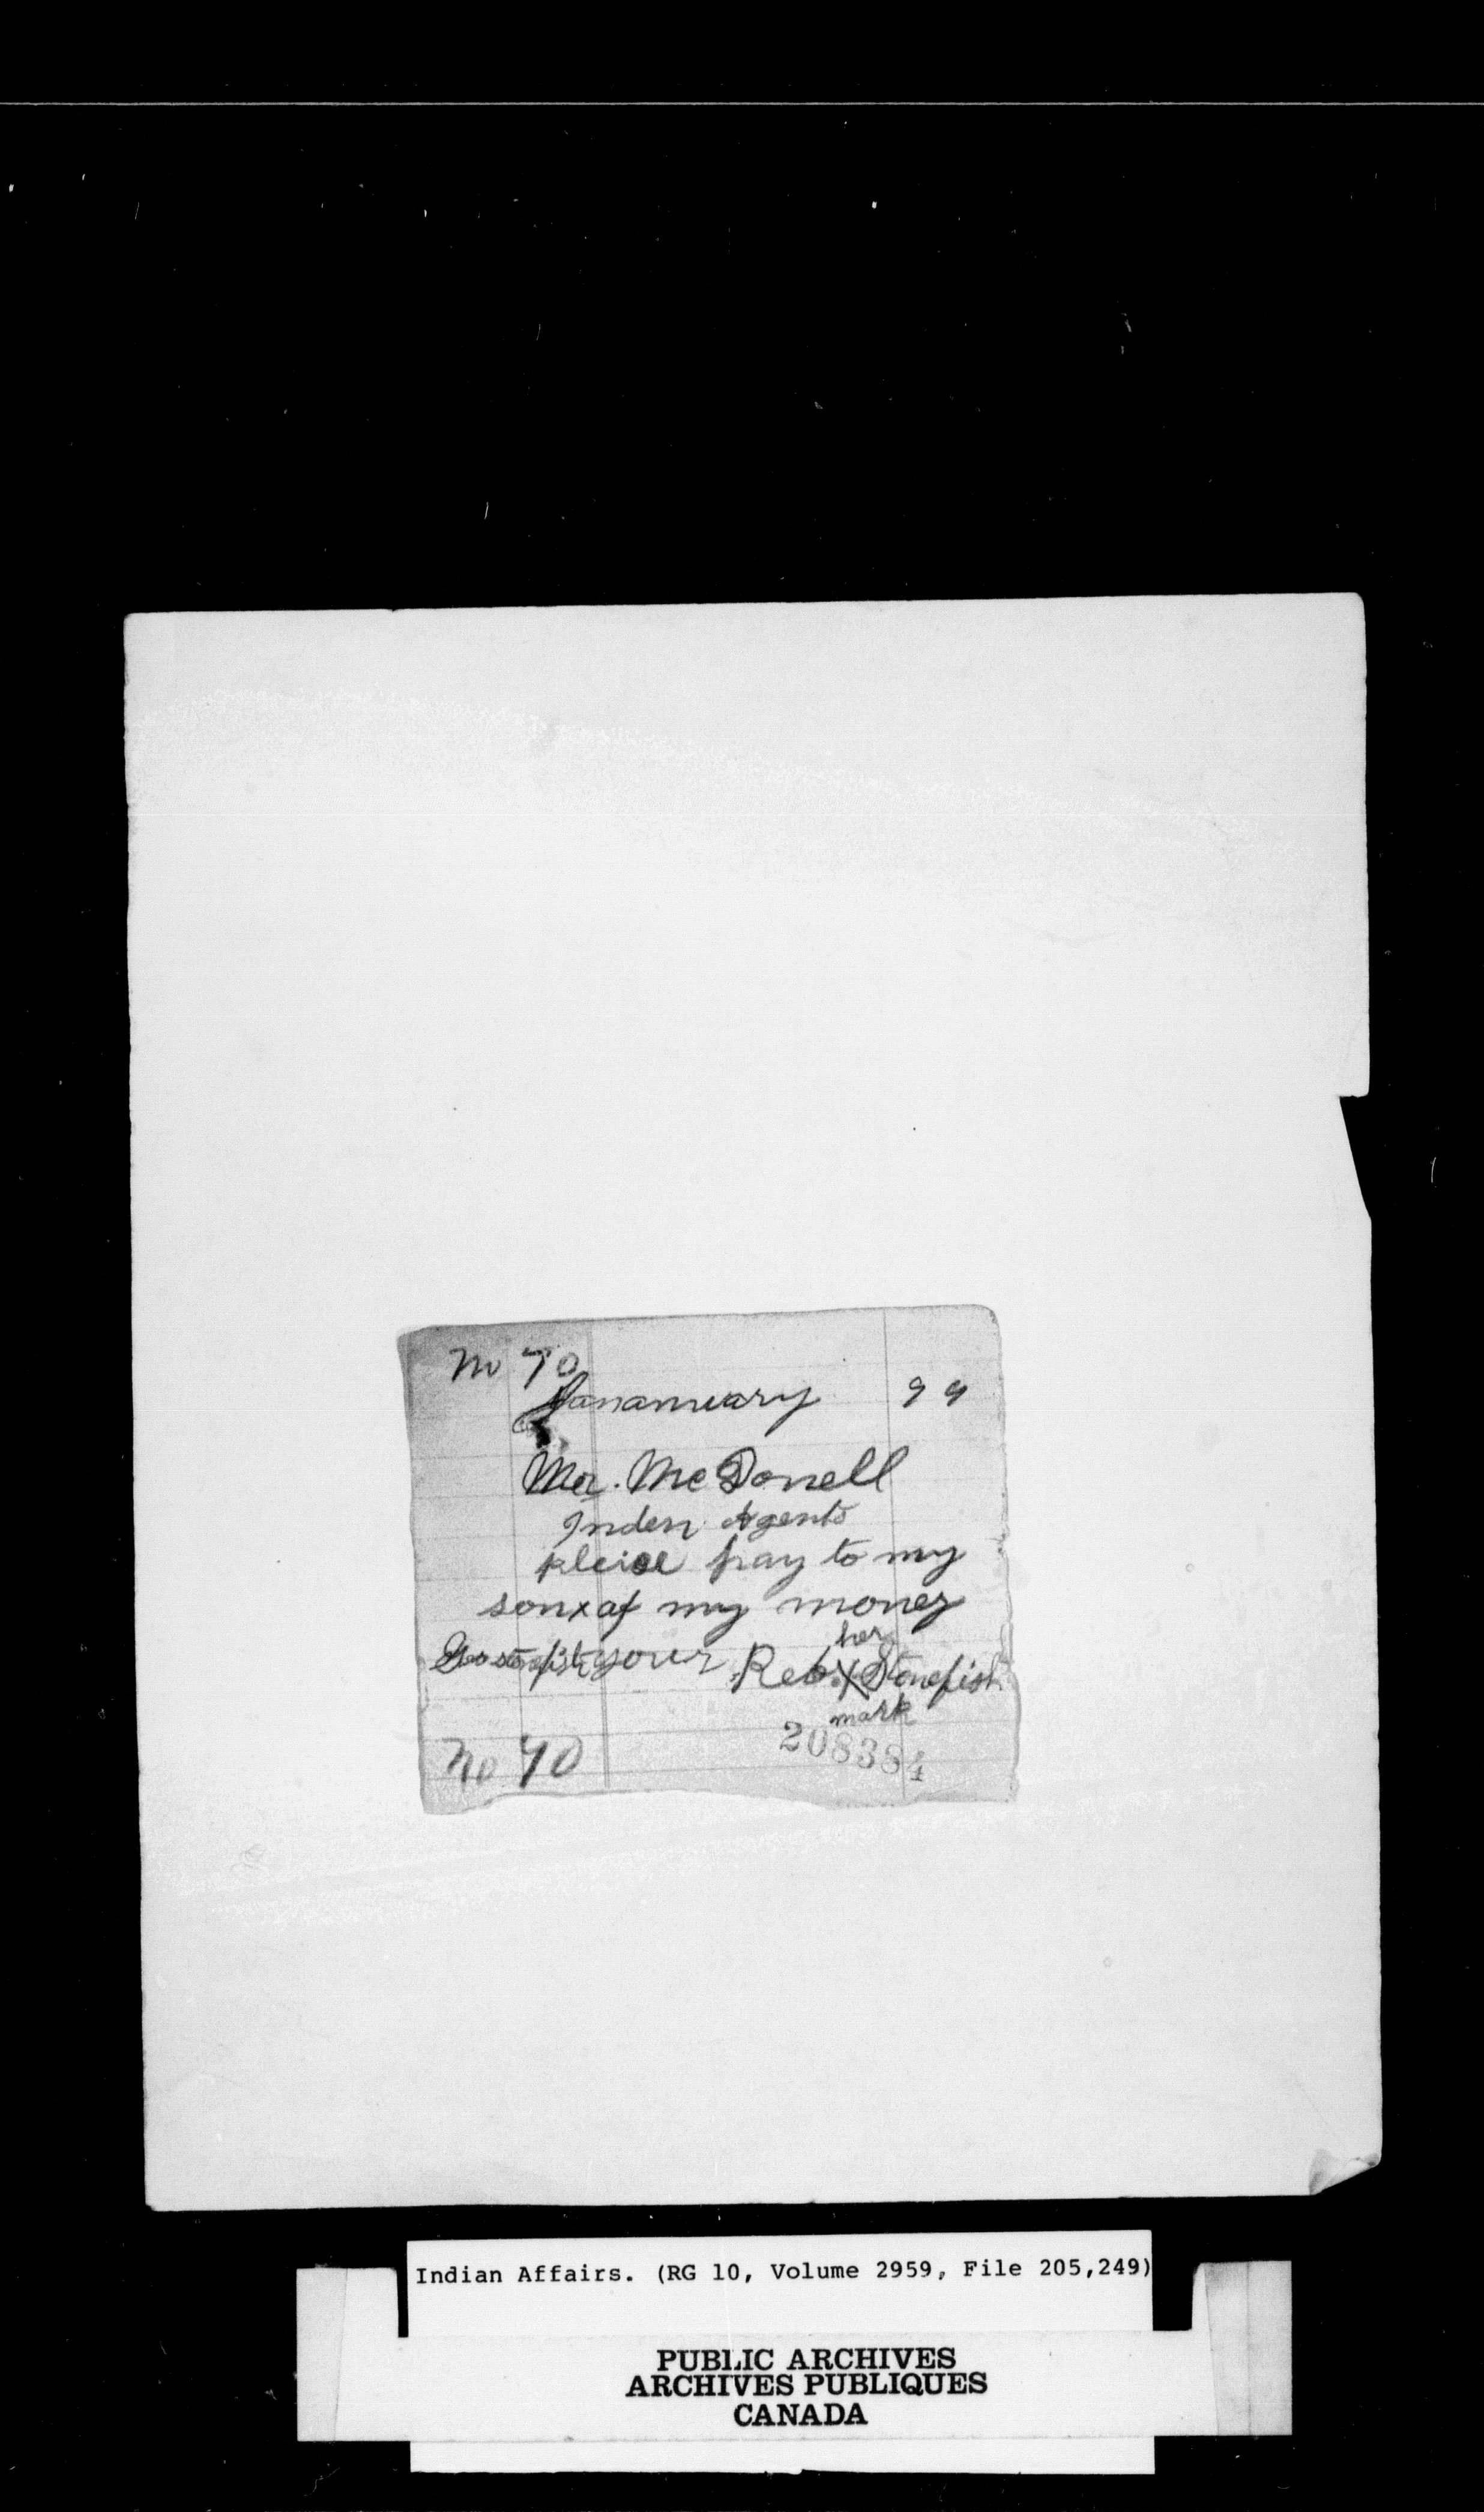 No 70
Jananuary 99
Mr. McDonell
Inden Agents
pleise pay to my
son x of my money
Geo stonefish your Reb. her X Stonefish
mark
208384
No 70
Indian Affairs. (RG 10, Volume 2959, File 205,249)
PUBLIC ARCHIVES
ARCHIVES PUBLIQUES
CANADA